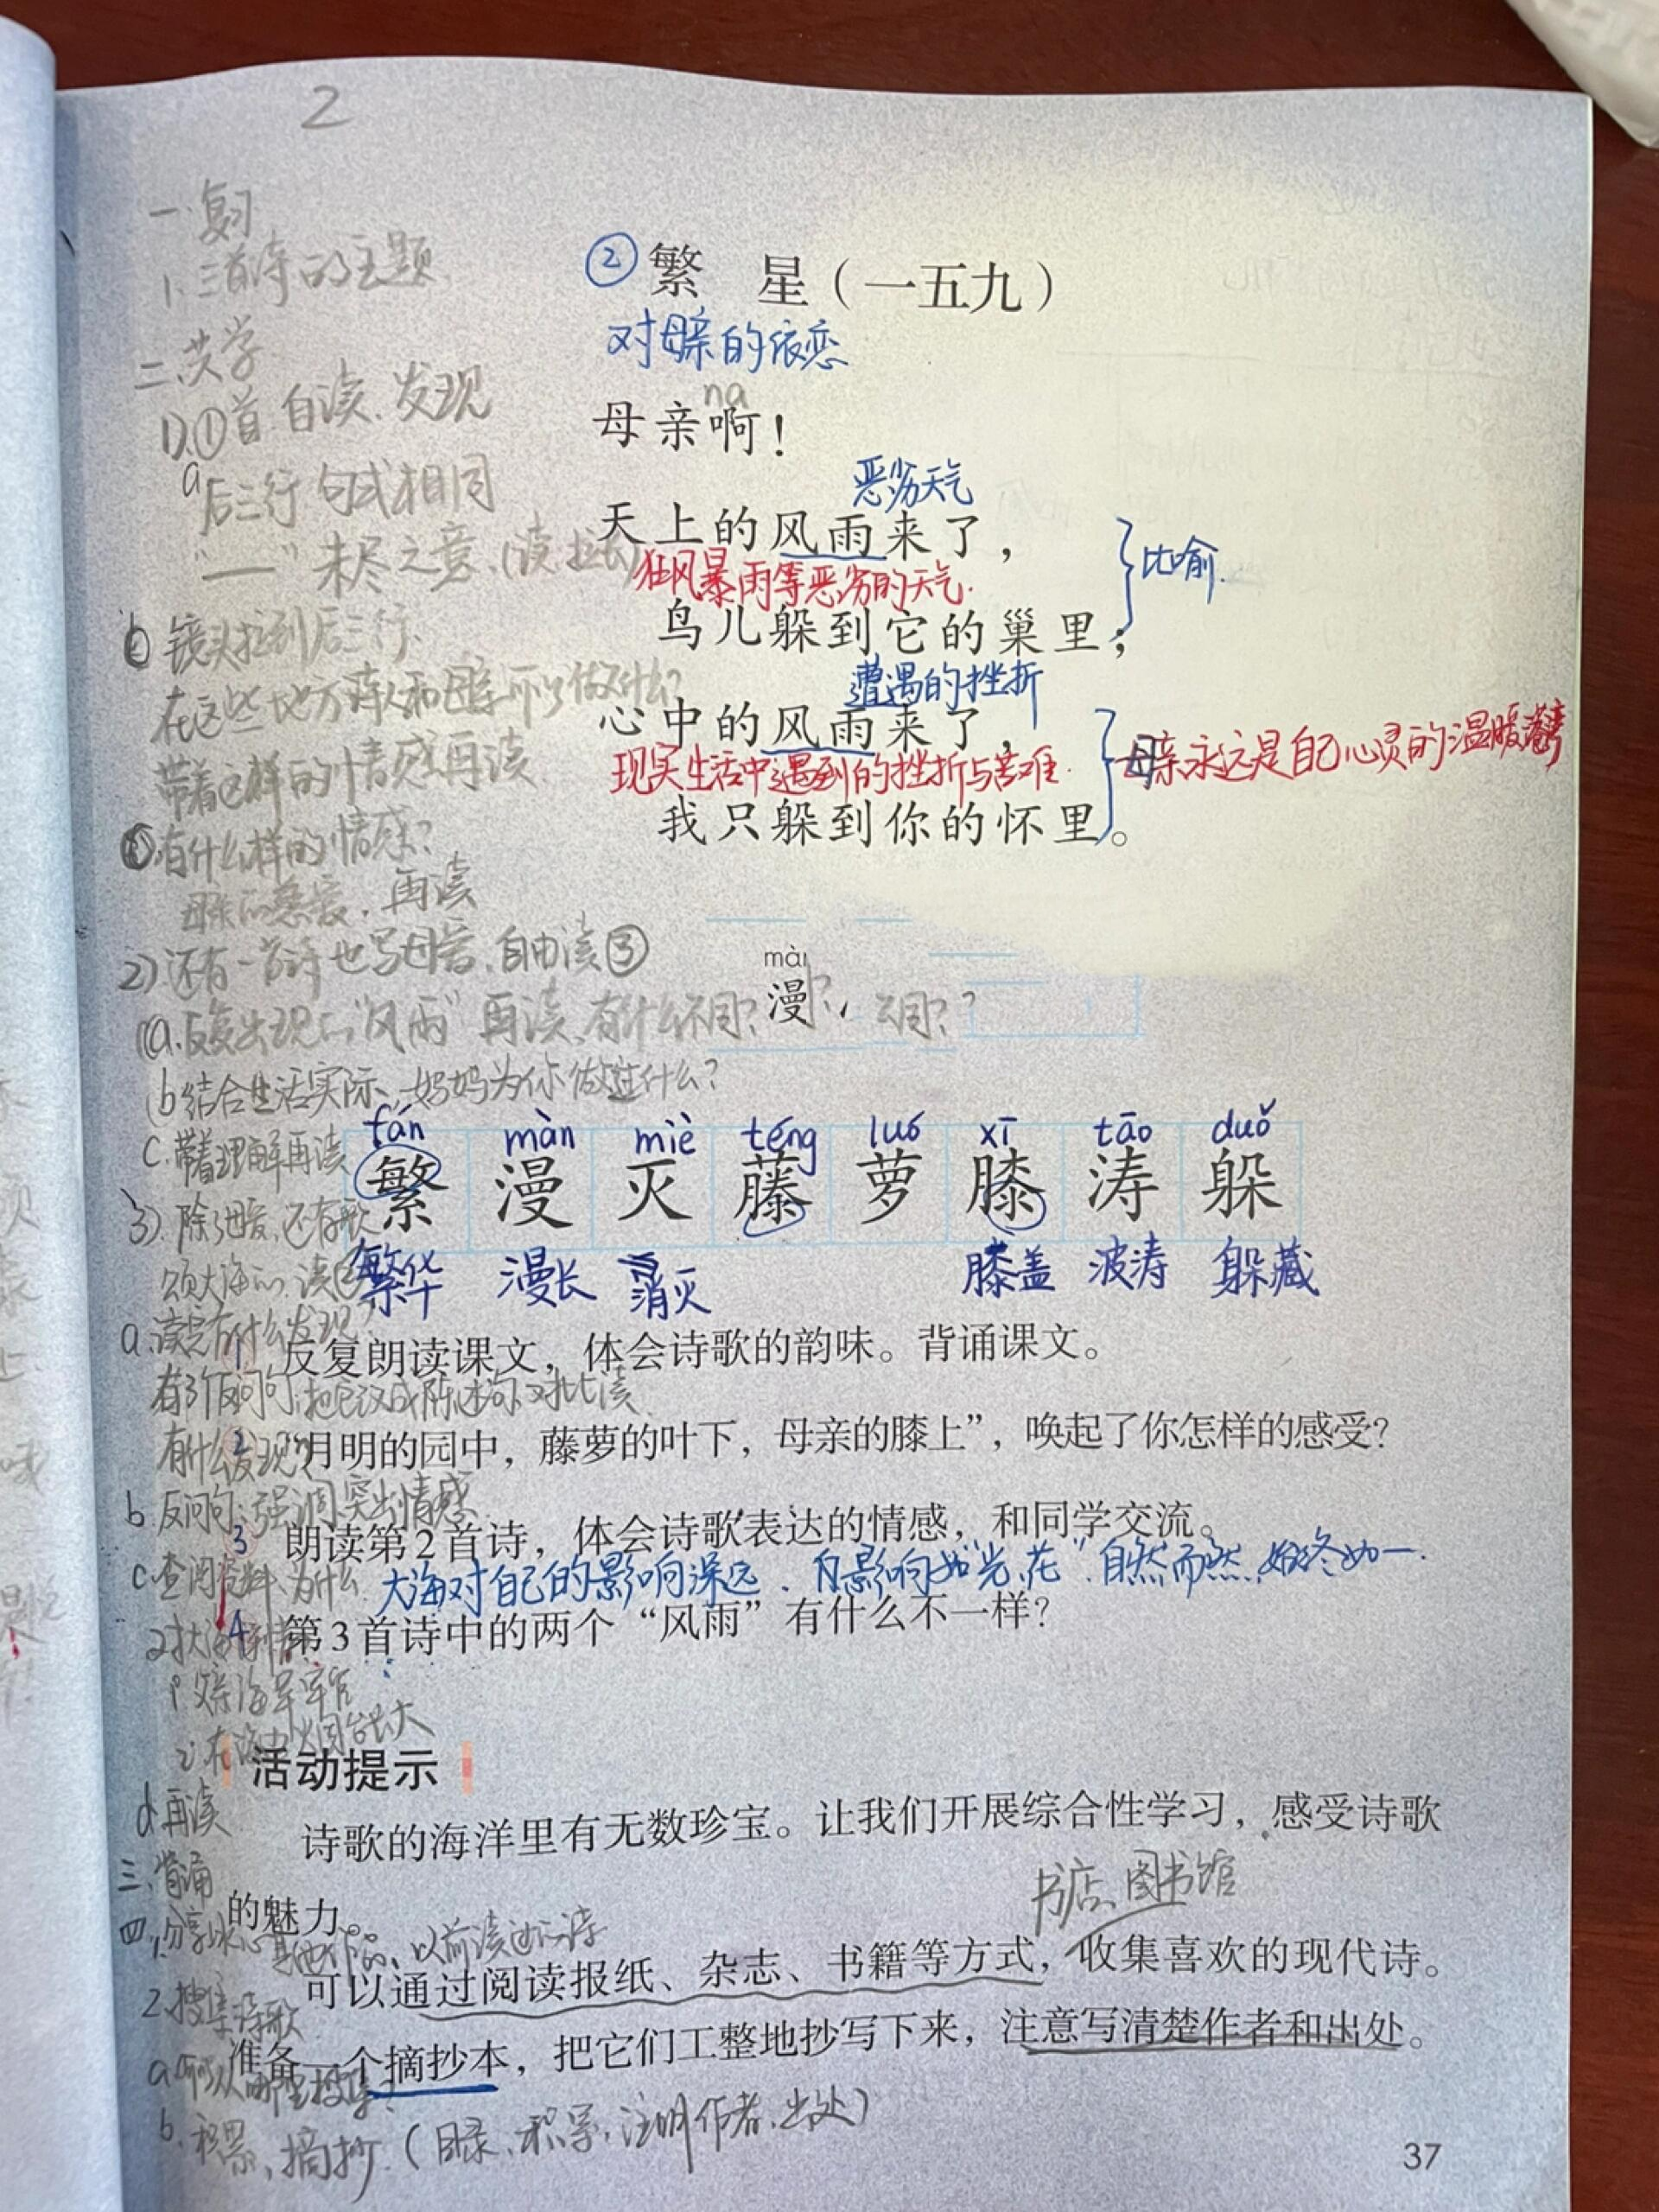 2
一.复习
1.三首诗的主题
②繁 星（一五九）
对母亲的依恋
二、共学
1).①首.自读、发现
na
母亲啊！
a后三行句式相同
恶劣天气
天上的风雨来了，
比喻.
“——”未尽之意、(读拉长)
狂风暴雨等恶劣的天气.
鸟儿躲到它的巢里；
b镜头拉到后三行.
在这些地方诗人和母亲可以做些什么?
遭遇的挫折
心中的风雨来了，
带着这样的情感再读
现实生活中遇到的挫折与苦难.
母亲永远是自己心灵的温暖港湾
我只躲到你的怀里。
有什么样的情感?
母亲的慈爱.再读
2)还有一首诗也写母爱、自由读③
màn
漫
a.反复出现的“风雨”再读、有什么不同?
b结合生活实际、妈妈为你做过什么?
fán màn miè téng luó xī tāo duǒ
繁 漫 灭 藤 萝 膝 涛 躲
繁华 漫长 消灭 膝盖 波涛 躲藏
c.带着理解再读
3).除了母爱、还有歌
颂大海的.读②
a.读完有什么发现?
1 反复朗读课文，体会诗歌的韵味。背诵课文。
有3个反问句:把它改成陈述句对比读
有什么发现?
2 “月明的园中，藤萝的叶下，母亲的膝上”，唤起了你怎样的感受？
b.反问句:强调、突出情感
3 朗读第2首诗，体会诗歌表达的情感，和同学交流。
c.查阅资料、为什么
大海对自己的影响深远、且影响如“光、花”自然而然、始终如一.
4 第3首诗中的两个“风雨”有什么不一样？
1.父亲海军军官
2.在海边烟台长大
活动提示
d再读
诗歌的海洋里有无数珍宝。让我们开展综合性学习，感受诗歌
的魅力。
三.背诵
书店、图书馆
四.1.分享冰心其他作品、以前读过的诗
可以通过阅读报纸、杂志、书籍等方式，收集喜欢的现代诗。
2.搜集诗歌
准备一个摘抄本，把它们工整地抄写下来，注意写清楚作者和出处。
a.可以从哪里搜集?
b.积累、摘抄.(目录、积累、注明作者、出处)
37